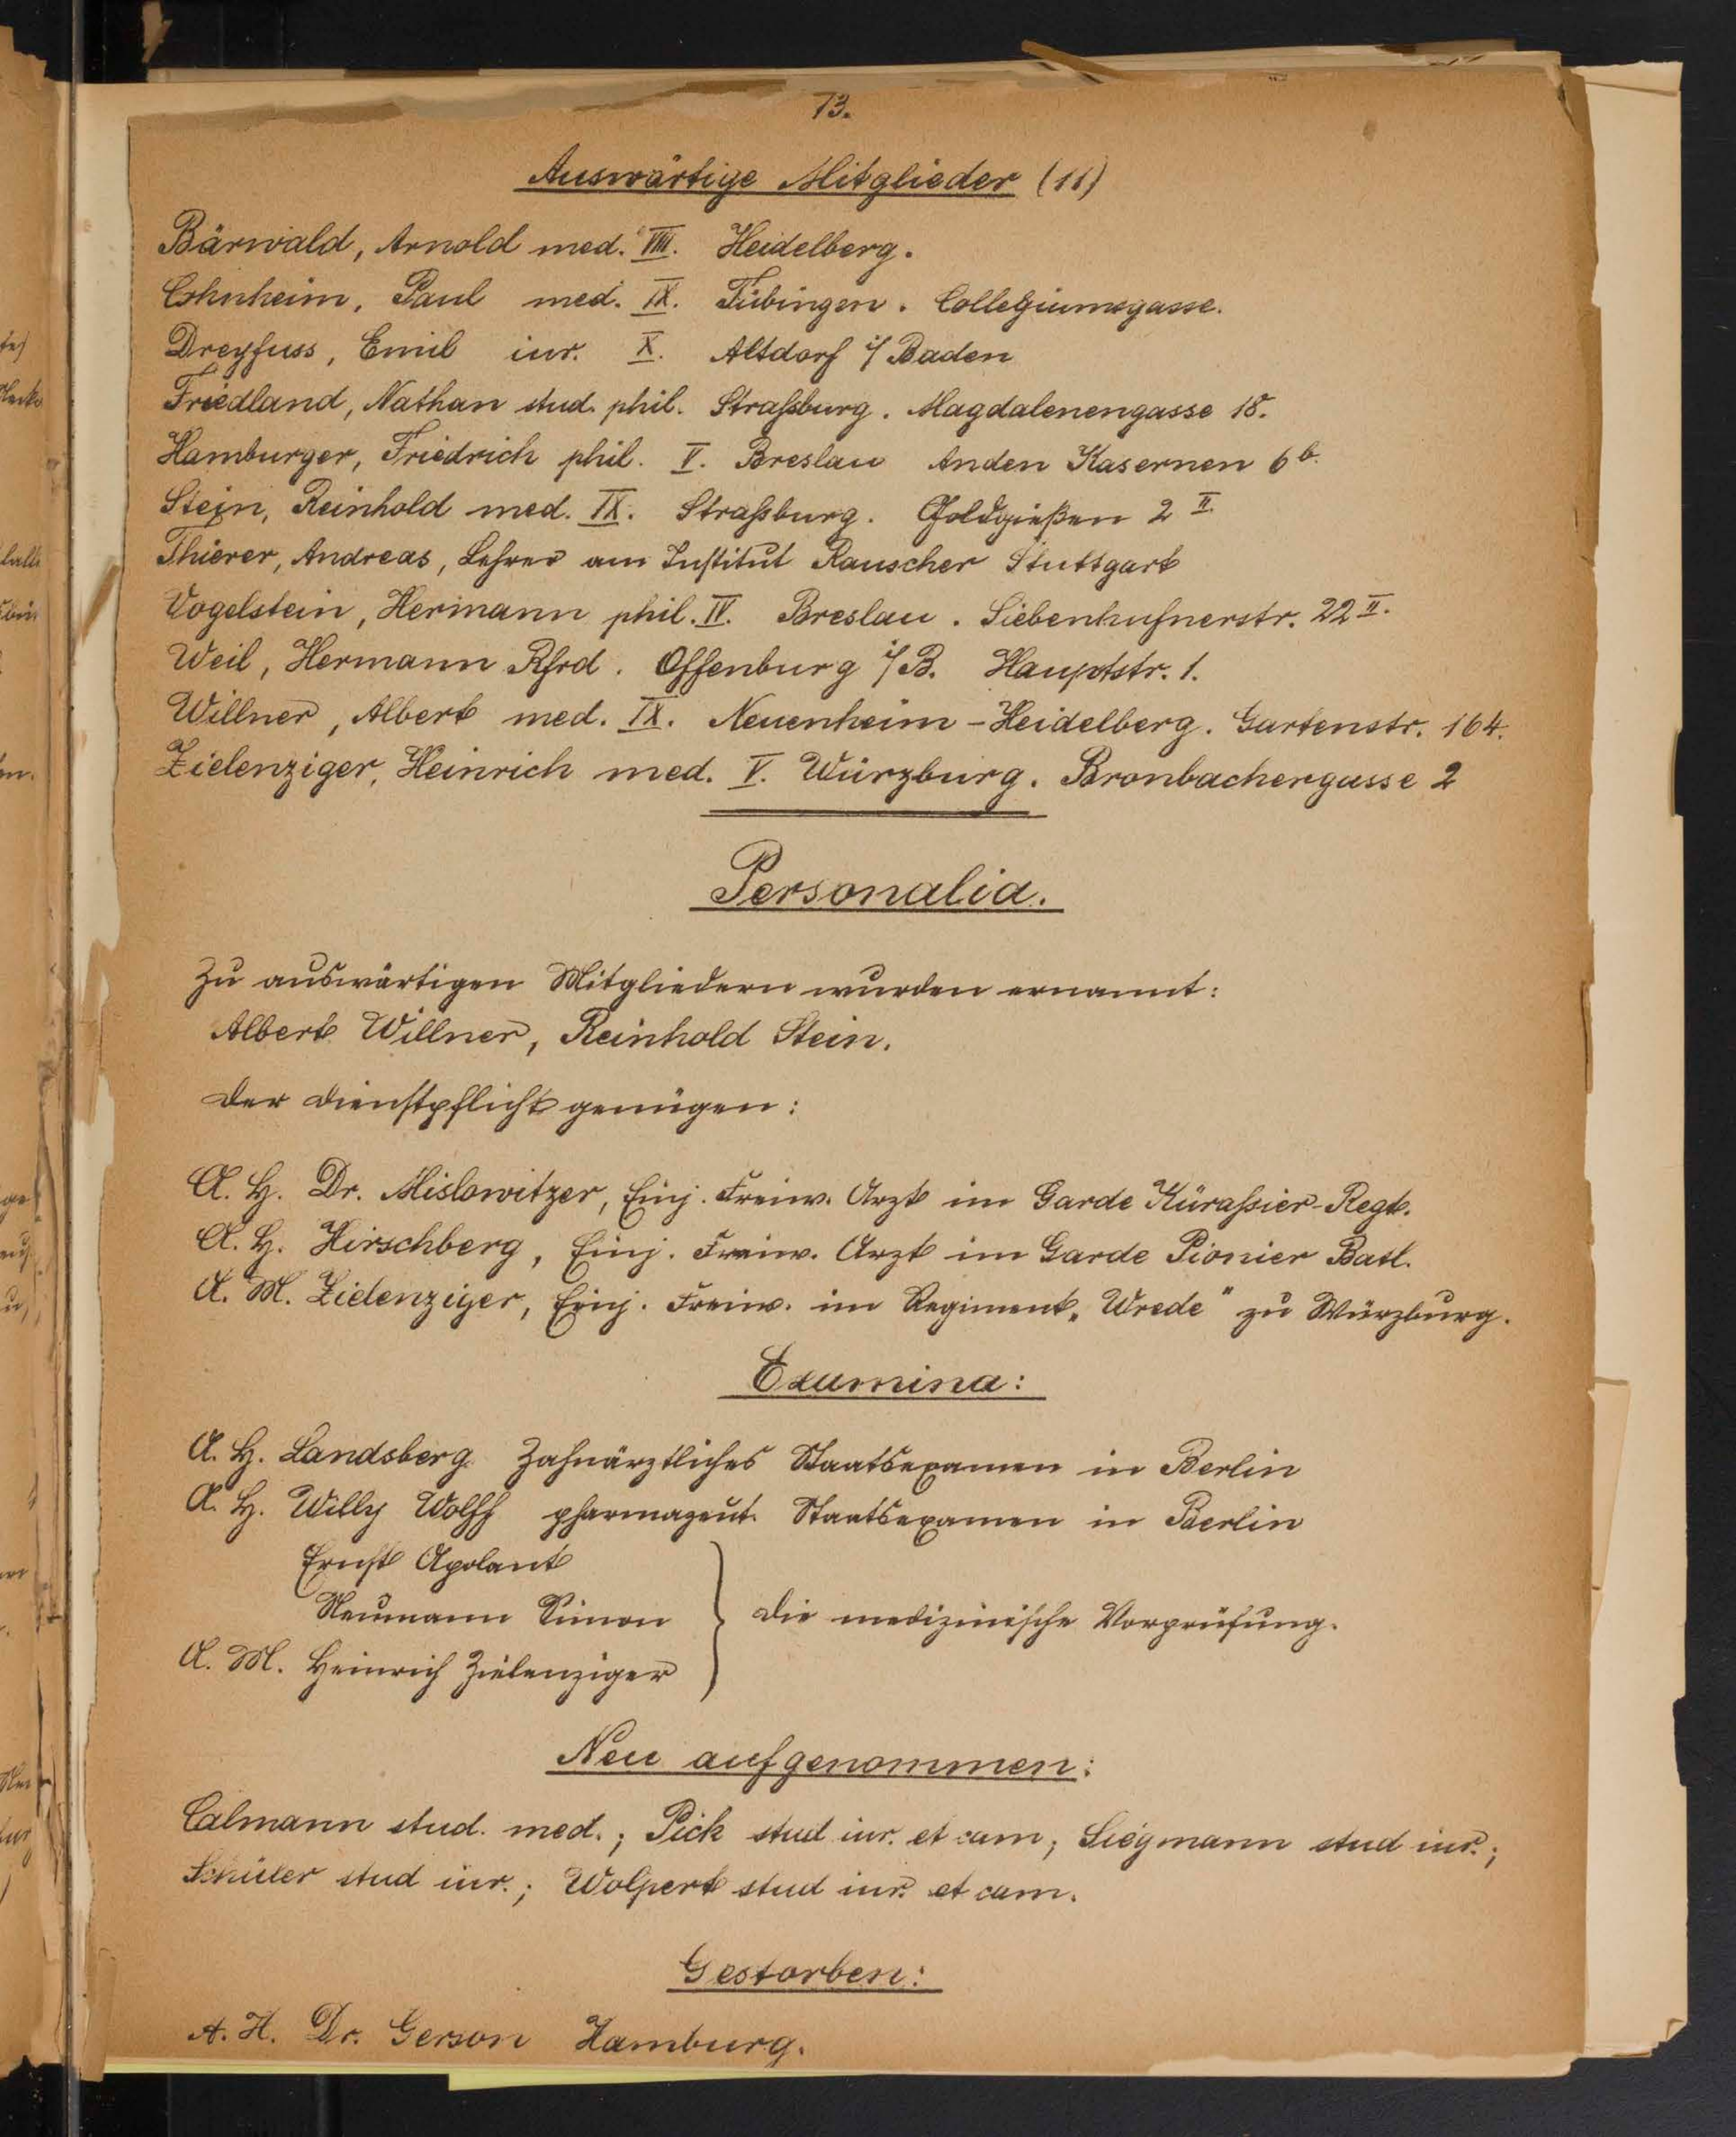 13.
Auswärtige Mitglieder (11)
Bärwald, Arnold med. VIII. Heidelberg.
Cohnheim, Paul med. IX. Tübingen. Collegiumsgasse.
Dreyfuss, Emil iur. X. Altdorf i/Baden
Friedland, Nathan stud. phil. Straßburg. Magdalenengasse 18.
Hamburger, Friedrich phil. V. Breslau An den Kasernen 6b.
Stein, Reinhold med. IX. Straßburg. Goldgießen 2 II.
Thierer, Andreas, Lehrer am Institut Rauscher Stuttgart
Vogelstein, Hermann phil. IV. Breslau. Siebenhufnerstr. 22 II.
Weil, Hermann Rfrd. Offenburg i/B. Hauptstr. 1.
Willner, Albert med. IX. Neuenheim-Heidelberg. Gartenstr. 164.
Zielenziger, Heinrich med. V. Würzburg. Bronbachergasse 2
Personalia.
Zu auswärtigen Mitgliedern wurden ernannt:
Albert Willner, Reinhold Stein.
Der Dienstpflicht genügen:
A. H. Dr. Mislowitzer, Einj. Freiw. Arzt im Garde Kürassier-Regt.
A. H. Hirschberg, Einj. Freiw. Arzt im Garde Pionier Batl.
A. M. Zielenziger, Einj. Freiw. im Regiment „Wrede" zu Würzburg.
Examina:
A. H. Landsberg Zahnärztliches Staatsexamen in Berlin
A. H. Willy Wolff pharmazeut. Staatsexamen in Berlin
Ernst Apolant
Neumann Simon } die medizinische Vorprüfung.
A. M. Heinrich Zielenziger
Neu aufgenommen:
Calmann stud. med.; Pick stud iur. et cam; Siegmann stud iur.;
Schüler stud iur.; Wolpert stud iur. et cam.
Gestorben:
A. H. Dr. Gerson Hamburg.